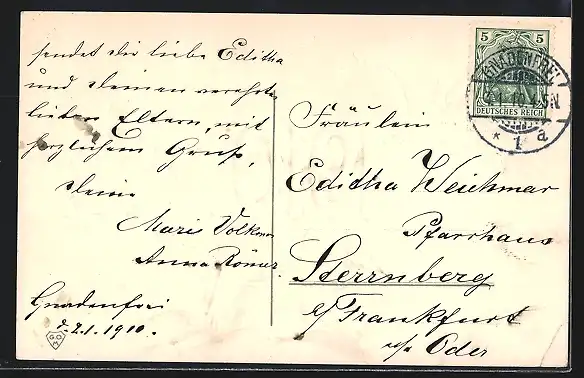 sendet dir liebe Editha
und deinen verehrten
lieben Eltern, mit
herzlichem Gruß,
deine
Marie Volkmer
Anna Römer.
Gnadenfrei
d. 2.1.1910.
Fräulein
Editha Weichmar
Pfarrhaus
Sternberg
b/Frankfurt
a/s Oder
5 5
DEUTSCHES REICH
GNADENFREI
* 1 a